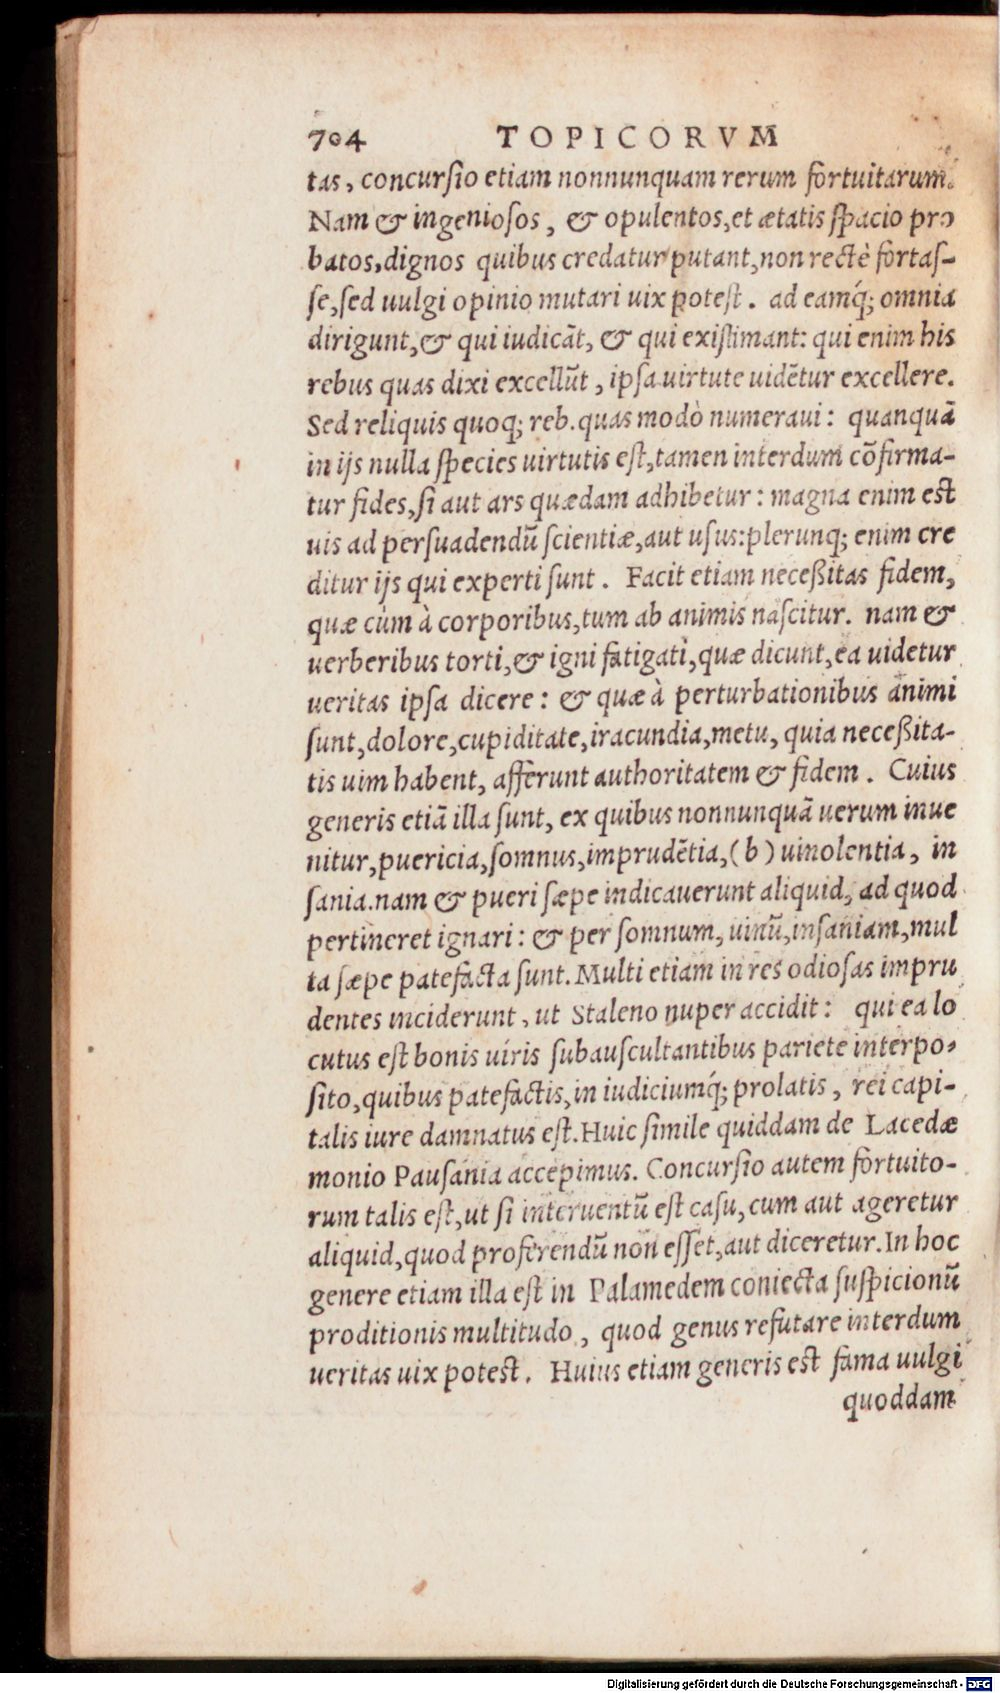 704 TOPICORVM
tas, concursio etiam nonnunquam rerum fortuitarum.
Nam & ingeniosos, & opulentos,et ætatis spacio pro
batos,dignos quibus credatur putant,non rectè fortas-
se,sed uulgi opinio mutari uix potest. ad eamq́; omnia
dirigunt,& qui iudicãt, & qui existimant: qui enim his
rebus quas dixi excellũt, ipsa uirtute uidẽtur excellere.
Sed reliquis quoq; reb.quas modò numeraui: quanquã
in ijs nulla species uirtutis est,tamen interdum cõfirma-
tur fides,si aut ars quædam adhibetur: magna enim est
uis ad persuadendũ scientiæ,aut usus:plerunq; enim cre
ditur ijs qui experti sunt. Facit etiam neceßitas fidem,
quæ cùm à corporibus,tum ab animis nascitur. nam &
uerberibus torti,& igni fatigati,quæ dicunt,ea uidetur
ueritas ipsa dicere: & quæ à perturbationibus animi
sunt,dolore,cupiditate,iracundia,metu, quia neceßita-
tis uim habent, afferunt authoritatem & fidem. Cuius
generis etiã illa sunt, ex quibus nonnunquã uerum inue
nitur,puericia,somnus,imprudẽtia,(b) uinolentia, in
sania.nam & pueri sæpe indicauerunt aliquid, ad quod
pertineret ignari: & per somnum, uinũ,insaniam,mul
ta sæpe patefacta sunt. Multi etiam in res odiosas impru
dentes inciderunt, ut Staleno nuper accidit: qui ea lo
cutus est bonis uiris subauscultantibus pariete interpo-
sito,quibus patefactis,in iudiciumq́; prolatis, rei capi-
talis iure damnatus est.Huic simile quiddam de Lacedæ
monio Pausania accepimus. Concursio autem fortuito-
rum talis est,ut si interuentũ est casu, cum aut ageretur
aliquid,quod proferendũ non esset,aut diceretur.In hoc
genere etiam illa est in Palamedem coniecta suspicionũ
proditionis multitudo, quod genus refutare interdum
ueritas uix potest. Huius etiam generis est fama uulgi
quoddam
Digitalisierung gefördert durch die Deutsche Forschungsgemeinschaft - DFG